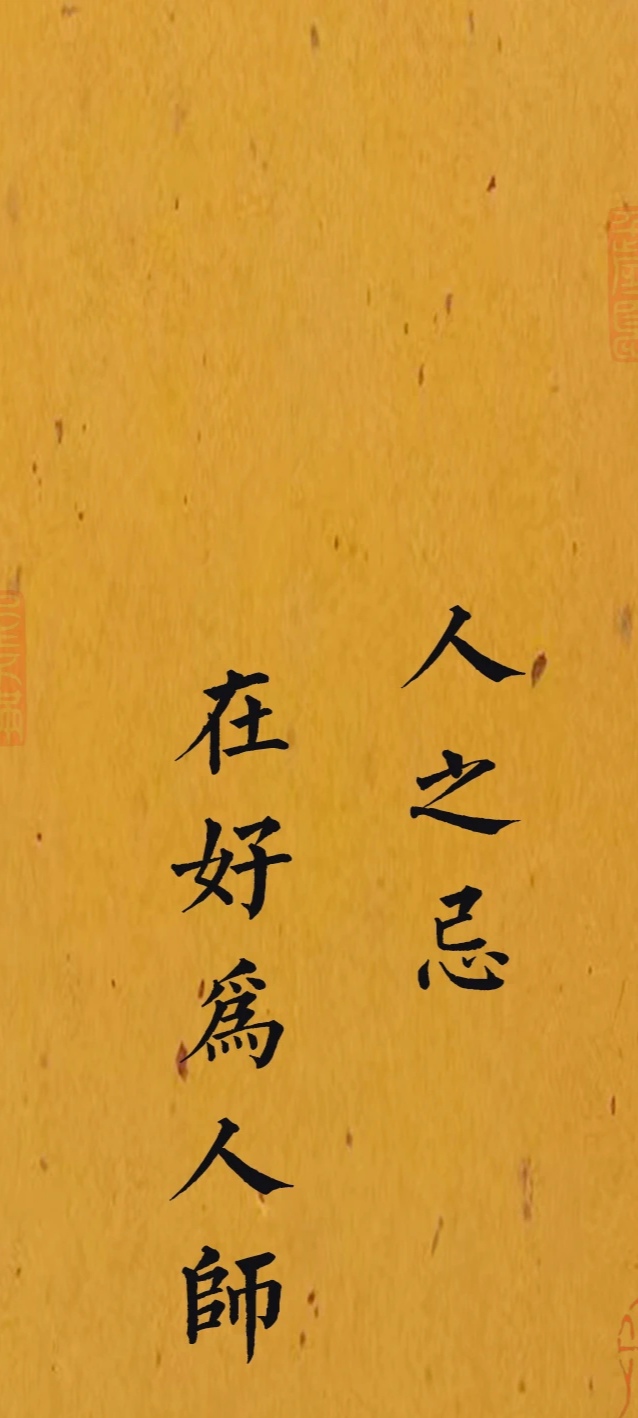 人之忌
在好爲人師